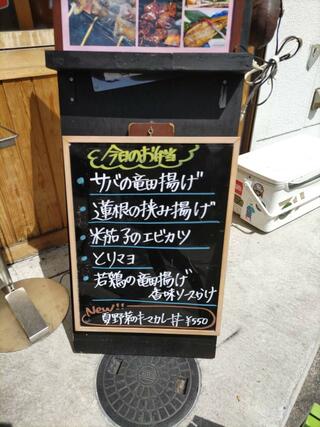 今日のお弁当
サバの竜田揚げ
蓮根の挟み揚げ
米茄子のエビカツ
とりマヨ
若鶏の竜田揚げ
香味ソースがけ
New!!
夏野菜のキーマカレー丼 ¥550